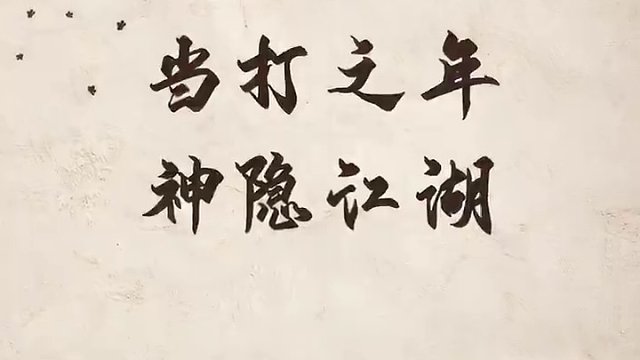 当打之年
神隐江湖